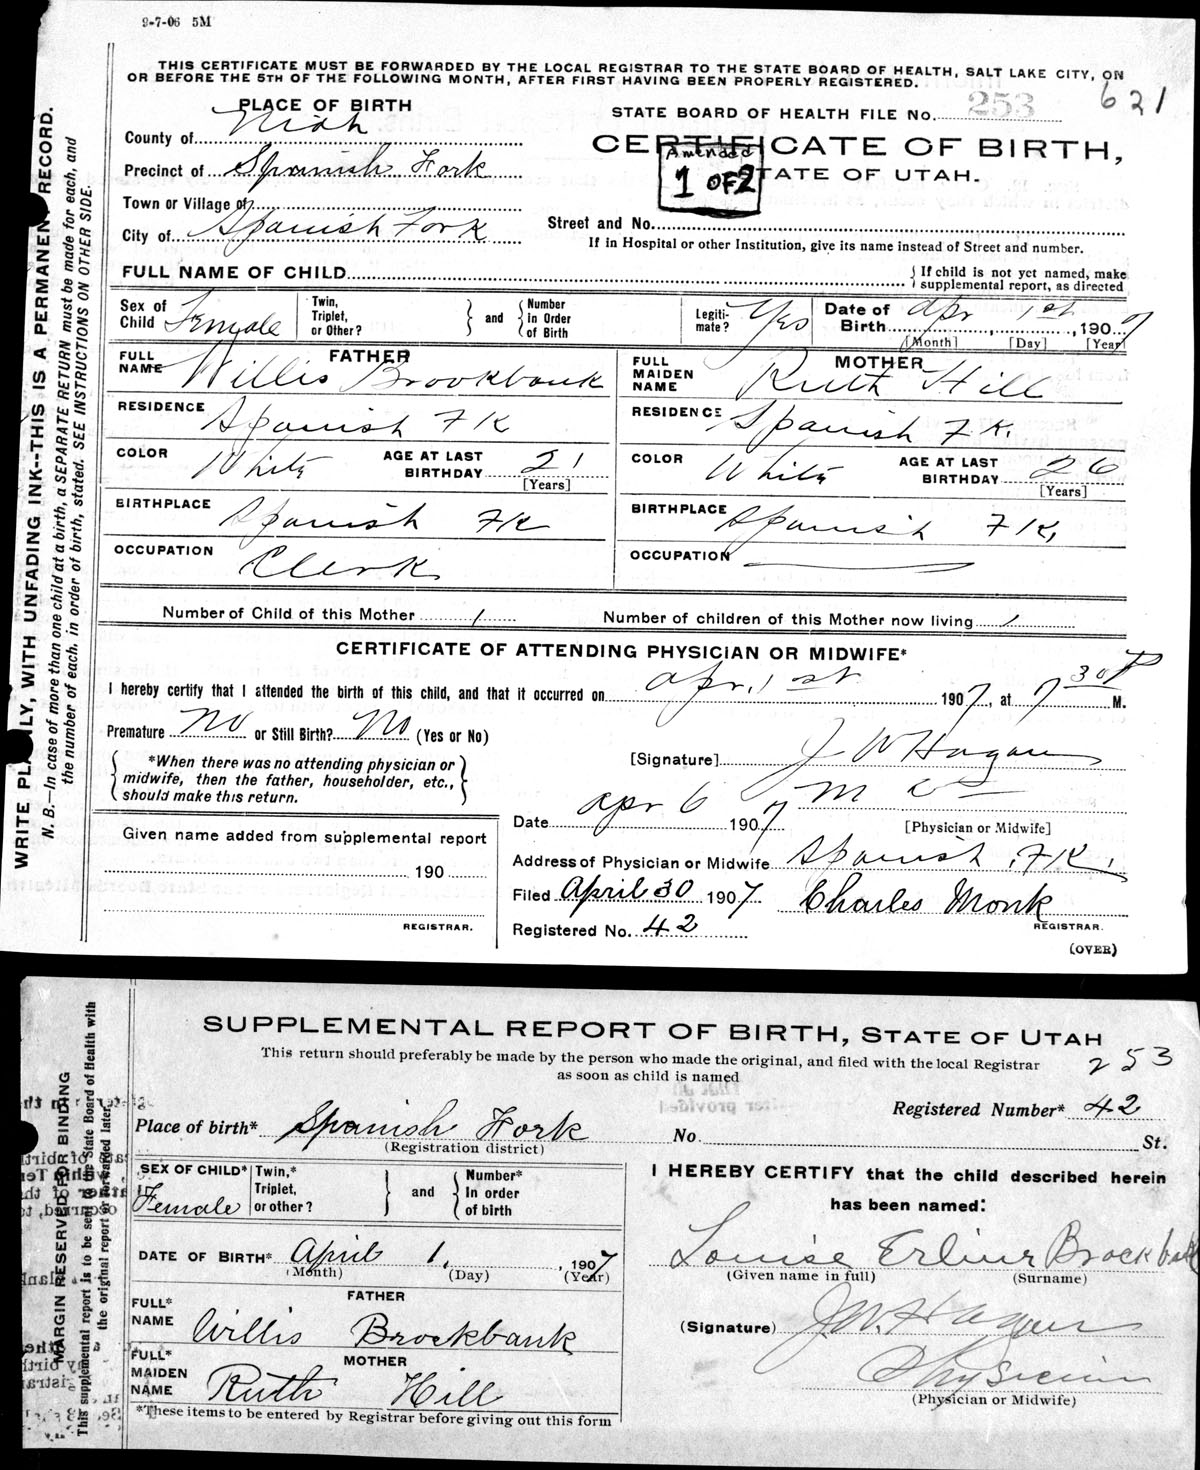 9-7-06 5M
THIS CERTIFICATE MUST BE FORWARDED BY THE LOCAL REGISTRAR TO THE STATE BOARD OF HEALTH, SALT LAKE CITY, ON
OR BEFORE THE 5TH OF THE FOLLOWING MONTH, AFTER FIRST HAVING BEEN PROPERLY REGISTERED.
621
PLACE OF BIRTH
STATE BOARD OF HEALTH FILE No. 253
County of Utah
CERTIFICATE OF BIRTH,
Amended
1 OF 2
STATE OF UTAH.
Precinct of Spanish Fork
Town or Village of
City of Spanish Fork
Street and No.
If in Hospital or other Institution, give its name instead of Street and number.
FULL NAME OF CHILD
If child is not yet named, make
supplemental report, as directed
Sex of Child Female
Twin, Triplet, or Other?
and
Number in Order of Birth
Legitimate? Yes
Date of Birth Apr 1st, 1907
[Month] [Day] [Year]
FATHER
FULL NAME Willis Brookbank
RESIDENCE Spanish Fk
COLOR White AGE AT LAST BIRTHDAY 21
[Years]
BIRTHPLACE Spanish Fk
OCCUPATION Clerk
MOTHER
FULL MAIDEN NAME Ruth Hill
RESIDENCE Spanish Fk.
COLOR White AGE AT LAST BIRTHDAY 26
[Years]
BIRTHPLACE Spanish Fk.
OCCUPATION
Number of Child of this Mother 1 Number of children of this Mother now living 1
CERTIFICATE OF ATTENDING PHYSICIAN OR MIDWIFE*
I hereby certify that I attended the birth of this child, and that it occurred on Apr. 1st 1907, at 7 30 P M.
Premature No or Still Birth? No (Yes or No)
*When there was no attending physician or
midwife, then the father, householder, etc.,
should make this return.
[Signature] J W Hagan
M D
[Physician or Midwife]
Date Apr 6 1907
Given name added from supplemental report
190
REGISTRAR.
Address of Physician or Midwife Spanish Fk.
Filed April 30 1907 Charles Monk
REGISTRAR.
Registered No. 42
(OVER)
WRITE PLAINLY, WITH UNFADING INK--THIS IS A PERMANENT RECORD.
N. B.—In case of more than one child at a birth, a SEPARATE RETURN must be made for each, and
the number of each, in order of birth, stated. SEE INSTRUCTIONS ON OTHER SIDE.
SUPPLEMENTAL REPORT OF BIRTH, STATE OF UTAH
This return should preferably be made by the person who made the original, and filed with the local Registrar
as soon as child is named
253
Registered Number* 42
Place of birth* Spanish Fork
(Registration district)
No. St.
SEX OF CHILD* Female
Twin,* Triplet, or other?
and
Number* In order of birth
DATE OF BIRTH* April 1, 1907
(Month) (Day) (Year)
FATHER
FULL* NAME Willis Brockbank
MOTHER
FULL* MAIDEN NAME Ruth Hill
*These items to be entered by Registrar before giving out this form
I HEREBY CERTIFY that the child described herein
has been named:
Louise Brockbank
(Given name in full) (Surname)
(Signature) J.W. Hagan
Physician
(Physician or Midwife)
MARGIN RESERVED FOR BINDING
This supplemental report is to be sent to the State Board of Health with
the original report or forwarded later